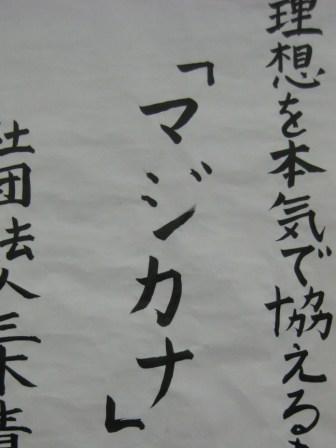 理想を本気で協える
「マジカナ」
社団法人三木青